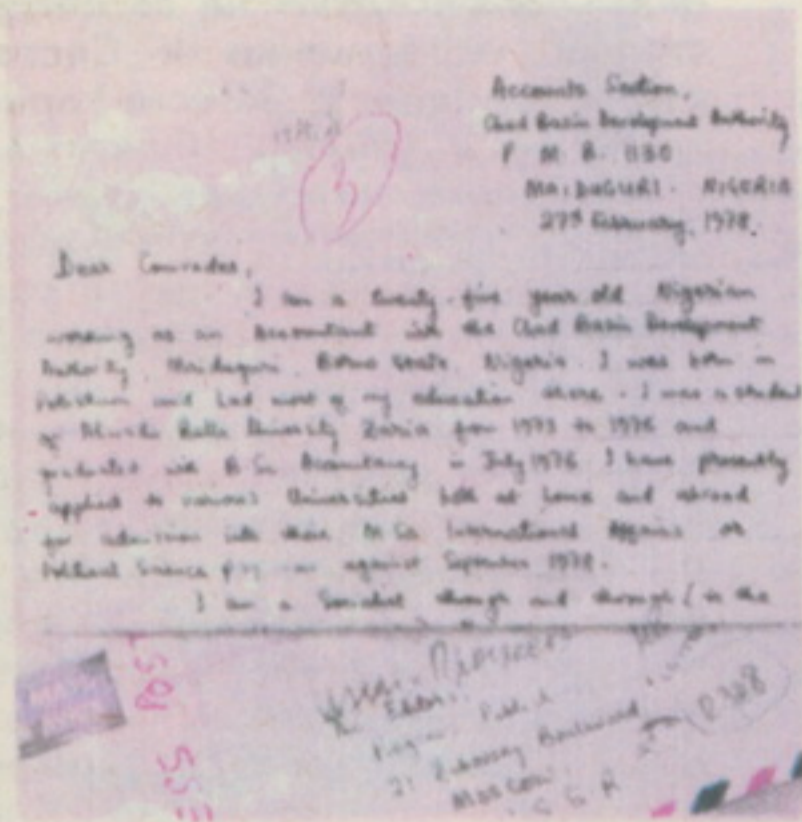 Accounts Section,
Chad Basin Development Authority
P. M. B. 1130
MAIDUGURI. NIGERIA
27th February, 1978.
3
Dear Comrades,
I am a twenty-five year old Nigerian
working as an Accountant with the Chad Basin Development
Authority, Maiduguri, Borno State, Nigeria. I was born in
Potiskum and had most of my education there. I was a student
of Ahmadu Bello University Zaria from 1973 to 1976 and
graduated with B.Sc Accountancy in July 1976 I have presently
applied to various Universities both at home and abroad
for admission into their M.Sc International Affairs or
Political Science against September 1978.
I am a Socialist through and through (in the
Editor
Progress Publ
21 Zubovsky Boulevard
MOSCOW
U S S R